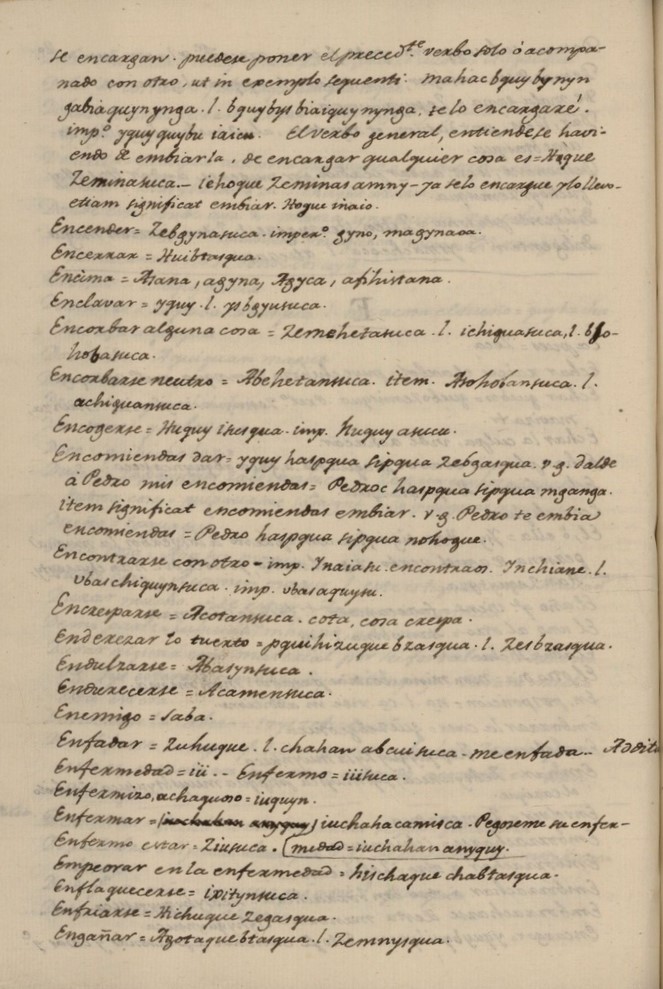 se encargan. puedese poner el preced.te verbo solo ó acompa-
nado con otro, ut in exemplo sequenti. mahac bquy bynyn
gabiaquynynga. l. bquybys biaiquynynga, te lo encargaré.
imp.o yquy quybu
El verbo general, entiendese havi-
endo de embiarla, de encargar qualquier cosa es= Hogue
Zeminasuca.- iehoque Zeminas amny- ya selo encargue y lo llevo-
etiam significat embiar. Hogue inaio.
Encender= Zebgynasuca. imper.o gyno, magynaoa.
Encerrar= Huibtasqua.
Encima = Asana, agyna, Agyca, afihistana.
Enclavar = yquy. l. ysbgyusuca.
Encorbar alguna cosa = Zemohetasuca. l. ichiquasuca, l.
hobasuca.
Encorbarse neutro = Abehetansuca. item. Asohobansuca. l.
achiquansuca.
Encogerse= Huquy ihisqua. imp. huquy asucu.
Encomiendas dar= yquy haspqua sipqua zebgasqua. v.g. dalde
á Pedro mis encomiendas= Pedroc haspqua sipqua mganga.
item significat encomiendas embiar. v.g. Pedro te embia
encomiendas = Pedro haspqua sipqua nohogue.
Encontrarse con otro- imp. Inaiasu. encontraos. Inchiane. l.
vbaschiquynsuca. imp. vbasaquysu.
Encresparse = Acotansuca. cota, cosa crespa.
Enderezar lo tuerto= pquihizuque bzasqua. l. Zesbzasqua.
Endulzarse= Abasynsuca.
Endurecerse= Acamensuca.
Enemigo = saba.
Enfadar = Zuhuque. l. chahan abcuisuca- me enfada.. Addit
Enfermedad= iii. - Enfermo= iiisuca.
Enfermizo, achaquoso= iuquyn.
Enfermar= (iuchahan anyquy) iuchahacamisca. Pegoseme su enfer-
Enfermo estar= Ziusuca. (medad= iuchahan anyquy.
Empeorar en la enfermedad= hischaque chabtasqua.
Enflaquecerse= ixitynsuca.
Enfriarse= Hichuque Zegasqua.
Engañar= Agotaque btasqua. l. Zemnysqua.